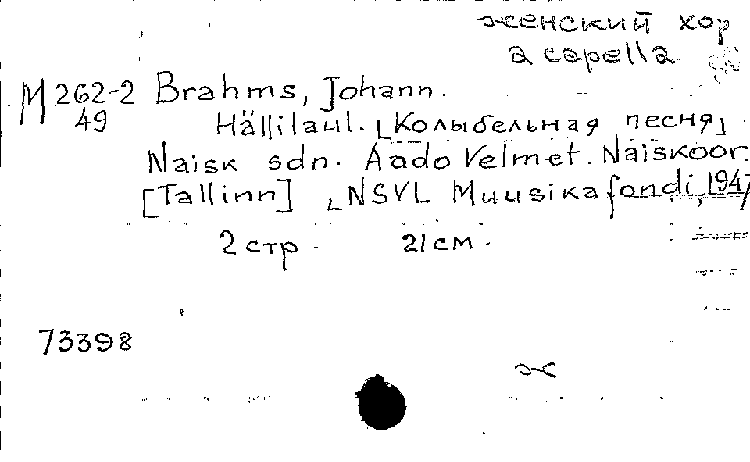 женский хор
a capella
M 262-2 Brahms, Johann.
49
Hällilaul. [Колыбельная песня].
Naisk sdn. Aado Velmet. Naiskoor.
[Tallinn] [NSVL Muusikafondi, 1947
2 стр. 21 см.
73398
ж